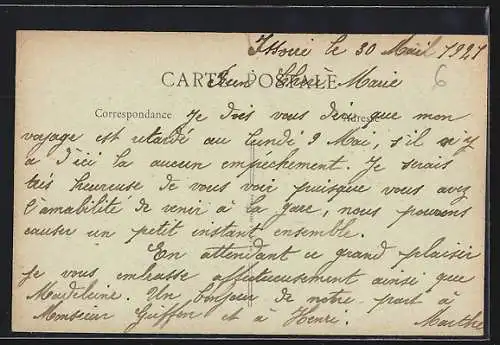 Issoire le 30 Mail 1921
CARTE POSTALE
Bien Chère Marie
6
Correspondance
Adresse
Je dois vous dire que mon
voyage est retardé au lundi 9 Mai, s'il n'y
a d'ici là aucun empéchement. Je serais
très heureuse de vous voir puisque vous avez
l'amabilité de venir à la gare, nous pourrons
causer un petit instant ensemble.
En attendant ce grand plaisir
je vous embrasse affectueusement ainsi que
Madeleine. Un bonjour de notre part à
Monsieur et à Henri. Marthe